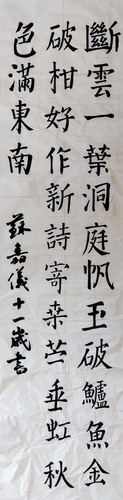 斷雲一葉洞庭帆玉破鱸魚金
破柑好作新詩寄桒苎垂虹秋
色滿東南
蘇嘉儀十一歲書